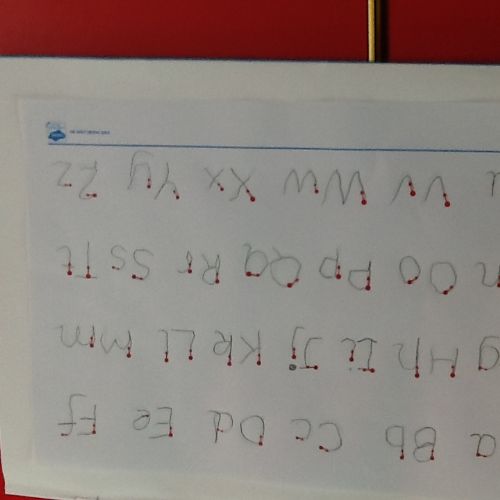 a Bb Cc Dd Ee Ff
g Hh Ii Jj Kk Ll Mm
n Oo Pp Qq Rr Ss Tt
u Vv Ww Xx Yy Zz